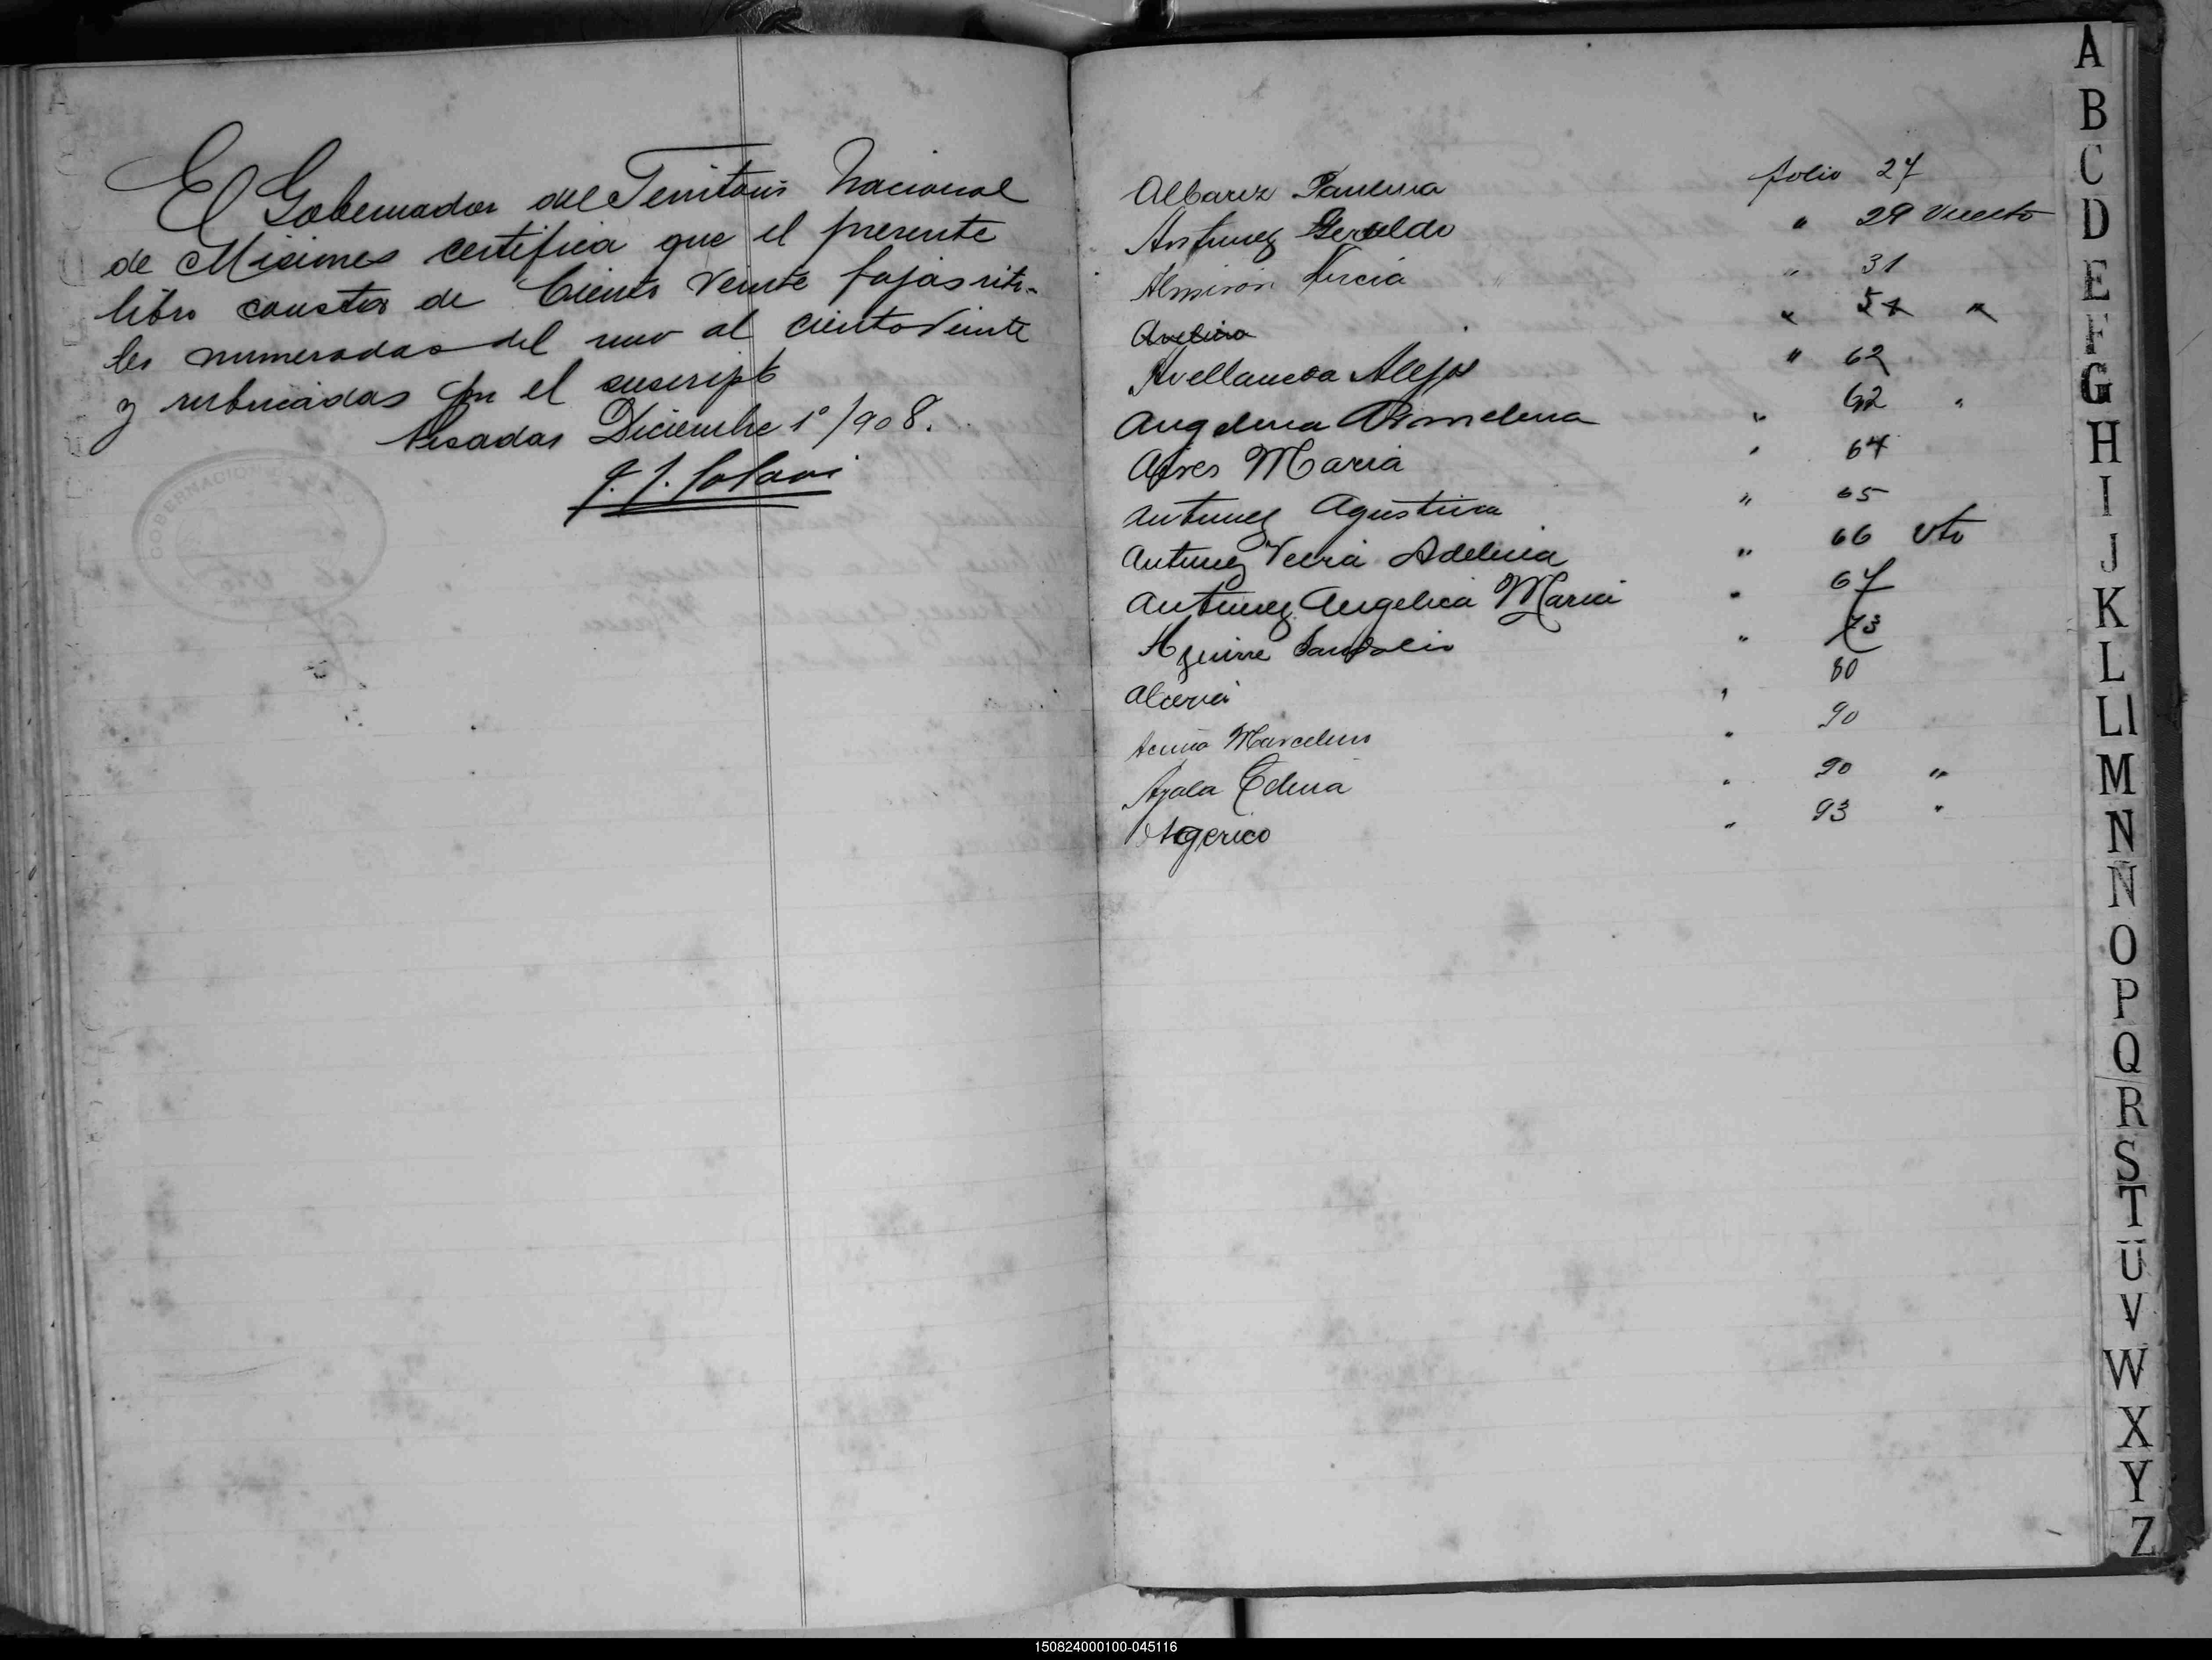 El Gobernador del Territorio Nacional
de Misiones certifica que el presente
libro consta de Ciento Veinte fojas úti-
les numeradas del uno al ciento veinte
y rubricadas por el suscripto
Posadas Diciembre 1º/908.
GOBERNACION
Albarez Paulina folio 27
Antunez Geraldo " 29 Vuelto
Almiron " 31
Avelino " 54 "
Avellaneda Alejo " 62
Angelina " 62 "
Alves Maria " 64
Antunez Agustina " 65
Antunez Vera Adelina " 66 Vto
Antunez Angelica Maria " 67
Aguirre Sandalio " 73
" 80
Acuña Marcelino " 90
Ayala Edina " 90 "
Agerico " 93 "
A
B
C
D
E
F
G
H
I
J
K
L
Ll
M
N
Ñ
O
P
Q
R
S
T
U
V
W
X
Y
Z
150824000100-045116